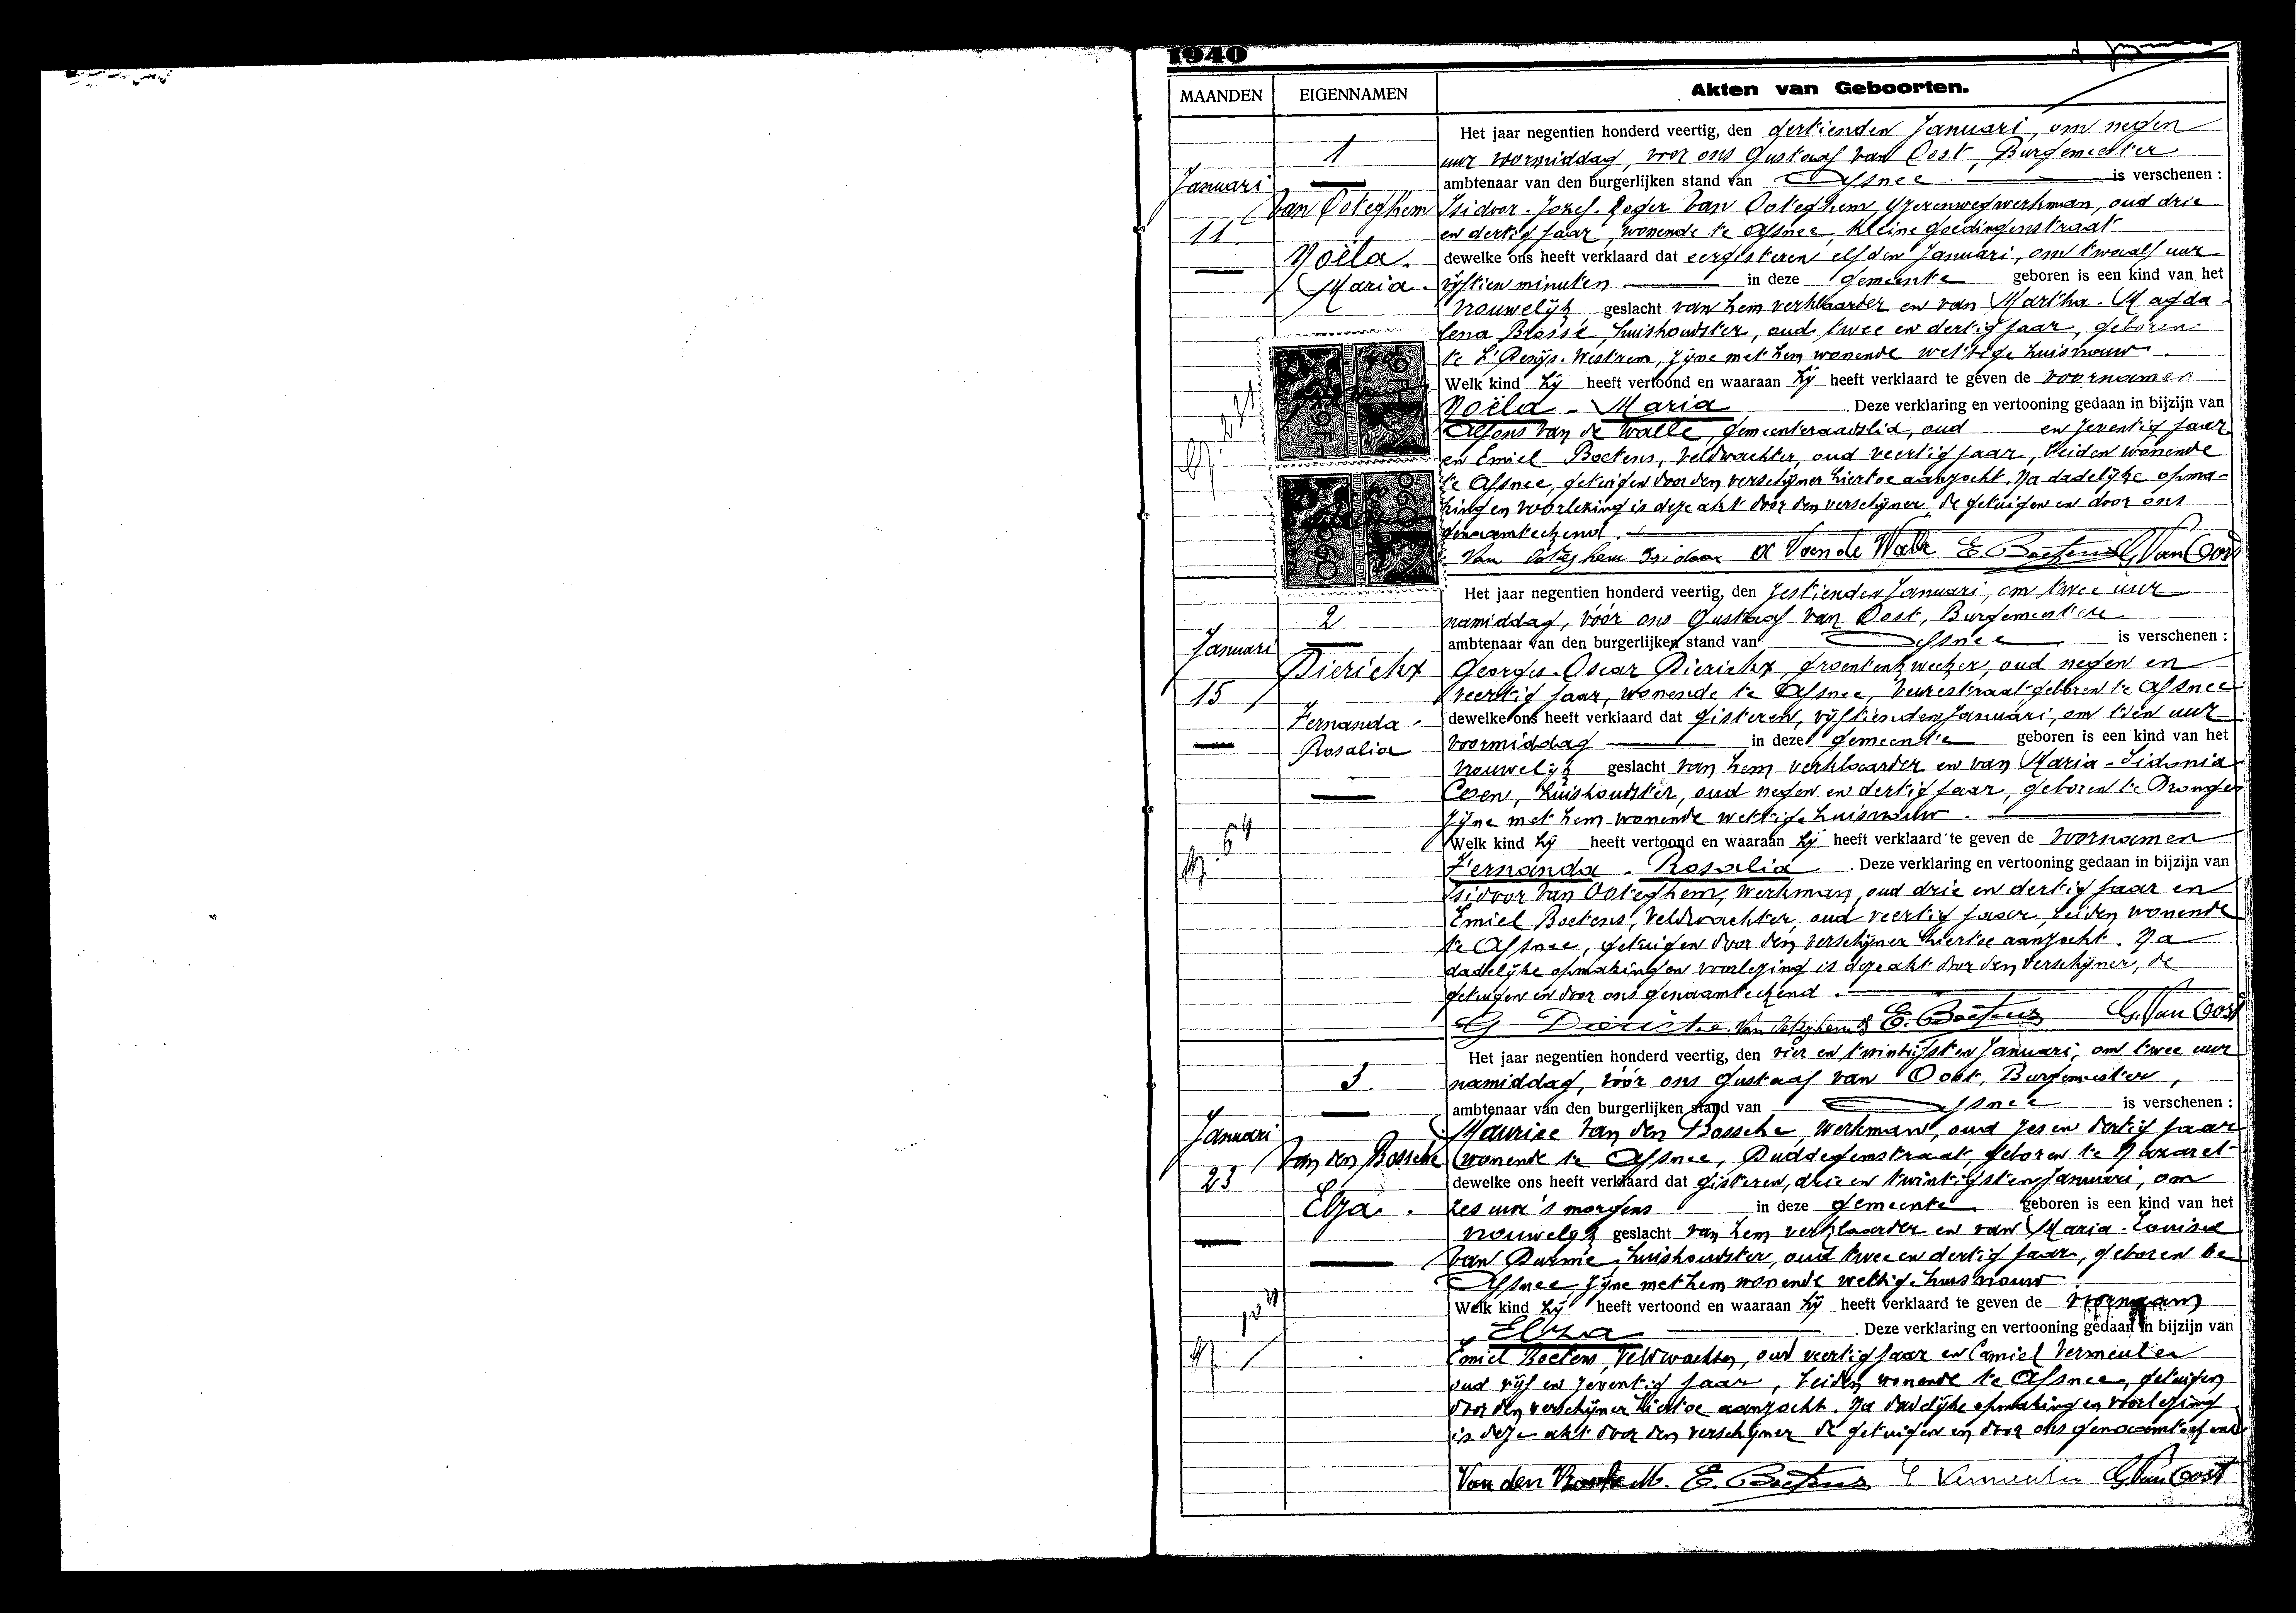 1940
MAANDEN EIGENNAMEN Akten van Geboorten.
1
Januari
Van Ooteghem
11.
Noëla.
Maria.
Het jaar negentien honderd veertig, den dertienden Januari, om negen
uur voormiddag, voor ons Gustaaf Van Oost, Burgemeester
ambtenaar van den burgerlijken stand van Afsnee is verschenen :
Isidoor-Jozef-Roger Van Ooteghem, Yzerenwegwerkman, oud drie
en dertig jaar, wonende te Afsnee, Kleine Goedingenstraat
dewelke ons heeft verklaard dat eergisteren elfden Januari, om twaalf uur
vijftien minuten in deze gemeente geboren is een kind van het
vrouwelijk geslacht van hem verklaarder en van Martha-Magda-
lena Blossé, huishoudster, oud twee en dertig jaar, geboren
te St Denijs-Westrem, zijne met hem wonende wettige huisvrouw.
Welk kind hij heeft vertoond en waaraan hij heeft verklaard te geven de voornamen
Noëla-Maria. Deze verklaring en vertooning gedaan in bijzijn van
Alfons Van de Walle, gemeenteraadslid, oud en zeventig jaar
en Emiel Boetens, veldwachter, oud veertig jaar, beiden wonende
te Afsnee, getuigen door den verschijner hiertoe aanzocht. Na dadelijke opma-
king en voorlezing is deze akt door den verschijner, de getuigen en door ons
genaamteekend.
Van Ooteghem Isidoor A Van de Walle E. Boetens G. Van Oost
2
Januari
Dierickx
15
Fernanda-
Rosalia
Het jaar negentien honderd veertig, den zestienden Januari, om twee uur
namiddag, vóór ons Gustaaf Van Oost, Burgemeester
ambtenaar van den burgerlijken stand van Afsnee is verschenen :
Georges-Oscar Dierickx, groentenkweeker, oud negen en
veertig jaar, wonende te Afsnee, Veurestraat, geboren te Afsnee
dewelke ons heeft verklaard dat gisteren, vijftienden Januari, om tien uur
voormiddag in deze gemeente geboren is een kind van het
vrouwelijk geslacht van hem verklaarder en van Maria-Sidonia
Coen, huishoudster, oud negen en dertig jaar, geboren te Drongen
zijne met hem wonende wettige huisvrouw.
Welk kind hij heeft vertoond en waaraan hij heeft verklaard te geven de voornamen
Fernanda-Rosalia. Deze verklaring en vertooning gedaan in bijzijn van
Isidoor Van Ooteghem, werkman, oud drie en dertig jaar en
Emiel Boetens, veldwachter, oud veertig jaar, beiden wonende
te Afsnee, getuigen door den verschijner hiertoe aanzocht. Na
dadelijke opmaking en voorlezing is deze akt door den verschijner, de
getuigen en door ons genaamteekend.
G Dierickx Van Ooteghem E. Boetens G. Van Oost
3.
Januari
Van den Bossche
23
Elza.
Het jaar negentien honderd veertig, den vier en twintigsten Januari, om twee uur
namiddag, vóór ons Gustaaf Van Oost, Burgemeester,
ambtenaar van den burgerlijken stand van Afsnee is verschenen :
Maurice Van den Bossche, werkman, oud zes en dertig jaar
wonende te Afsnee, Duddegemstraat, geboren te Nazaret
dewelke ons heeft verklaard dat gisteren, drie en twintigsten Januari, om
zes uur 's morgens in deze gemeente geboren is een kind van het
vrouwelijk geslacht van hem verklaarder en van Maria-Louisa
Van Durme, huishoudster, oud twee en dertig jaar, geboren te
Afsnee, zijne met hem wonende wettige huisvrouw
Welk kind hij heeft vertoond en waaraan hij heeft verklaard te geven de voornaam
Elza. Deze verklaring en vertooning gedaan in bijzijn van
Emiel Boetens, veldwachter, oud veertig jaar en Camiel Vermeulen
oud vijf en zeventig jaar, beiden wonende te Afsnee, getuigen
door den verschijner hiertoe aanzocht. Na dadelijke opmaking en voorlezing
is deze akt door den verschijner de getuigen en door ons genaamteekend
Van den Bossche M. E. Boetens C Vermeulen G. Van Oost